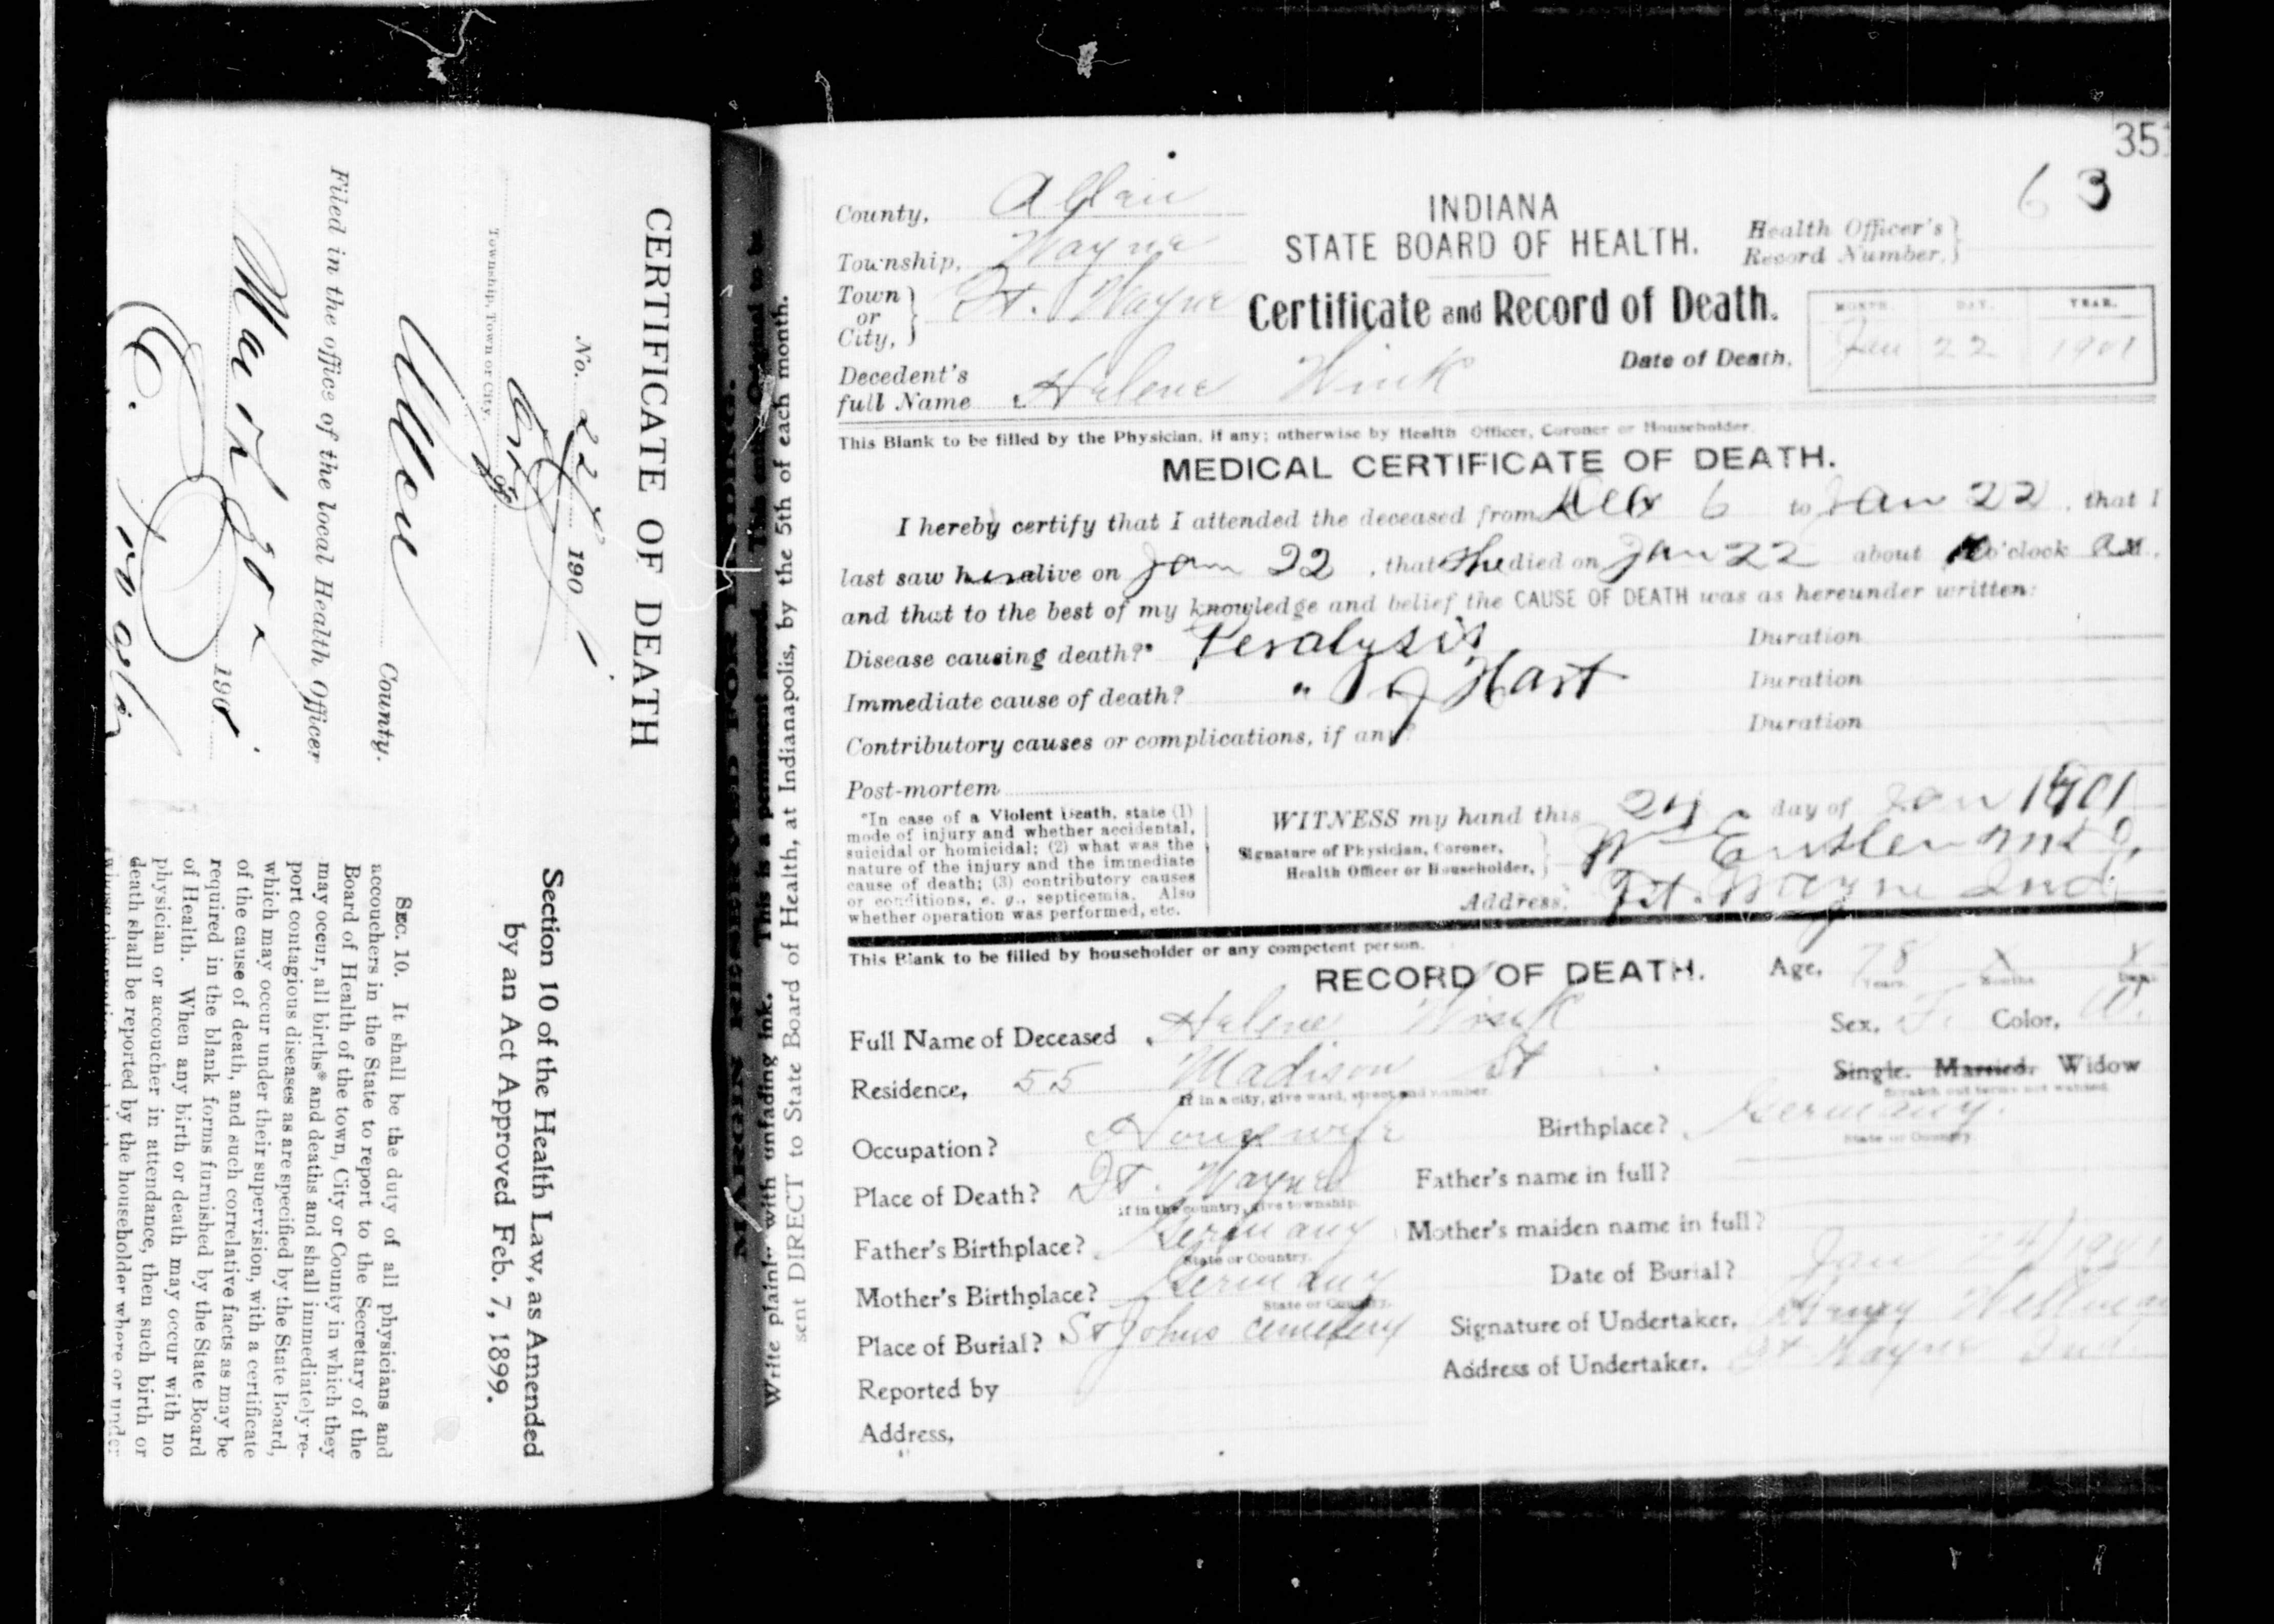 CERTIFICATE OF DEATH
No. 190
Township, Town or City.
of
Allen County.
Filed in the office of the local Health Officer
190
Section 10 of the Health Law, as Amended
by an Act Approved Feb. 7, 1899.
SEC. 10. It shall be the duty of all physicians and
accouchers in the State to report to the Secretary of the
Board of Health of the town, City or County in which they
may occur, all births* and deaths and shall immediately re-
port contagious diseases as are specified by the State Board,
which may occur under their supervision, with a certificate
of the cause of death, and such correlative facts as may be
required in the blank forms furnished by the State Board
of Health. When any birth or death may occur with no
physician or accoucher in attendance, then such birth or
death shall be reported by the householder where or under
MARGIN RESERVED FOR BINDING.
Write plainly with unfading ink. This is a permanent
sent DIRECT to State Board of Health, at Indianapolis, by the 5th of each month.
35
63
County, Allen
INDIANA
STATE BOARD OF HEALTH.
Health Officer's
Record Number.
Township, Wayne
Town or City, Ft. Wayne
Certificate and Record of Death.
MONTH. DAY. YEAR.
Date of Death. Jan 22 1901
Decedent's full Name Helene Wink
This Blank to be filled by the Physician, if any; otherwise by Health Officer, Coroner or Householder.
MEDICAL CERTIFICATE OF DEATH.
I hereby certify that I attended the deceased from 6 to Jan 22, that I
last saw her alive on Jan 22, that she died on Jan 22 about o'clock
and that to the best of my knowledge and belief the CAUSE OF DEATH was as hereunder written:
Disease causing death?* Peralysis Duration
Immediate cause of death? " of Hart Duration
Contributory causes or complications, if any? Duration
Post-mortem
*In case of a Violent Death, state (1)
mode of injury and whether accidental,
suicidal or homicidal; (2) what was the
nature of the injury and the immediate
cause of death; (3) contributory causes
or conditions, e. g., septicemia. Also
whether operation was performed, etc.
WITNESS my hand this 24 day of Jan 1901
Signature of Physician, Coroner,
Health Officer or Householder,
Address, Ft. Wayne Ind
This Blank to be filled by householder or any competent person.
RECORD OF DEATH. Age, 78 Years X Months X Days
Full Name of Deceased Helene Wink Sex, F. Color, W.
Residence, 55 Madison St Single. Married. Widow
If in a city, give ward, street and number. Scratch out terms not wanted.
Occupation? Housewife Birthplace? Germany.
State or Country.
Place of Death? Ft. Wayne Father's name in full?
If in the country, give township.
Father's Birthplace? Germany Mother's maiden name in full?
State or Country.
Mother's Birthplace? Germany Date of Burial? Jan 24/1901
State or Country.
Place of Burial? St Johns Cemetery Signature of Undertaker, Henry
Reported by Address of Undertaker, Ft Wayne Ind
Address,